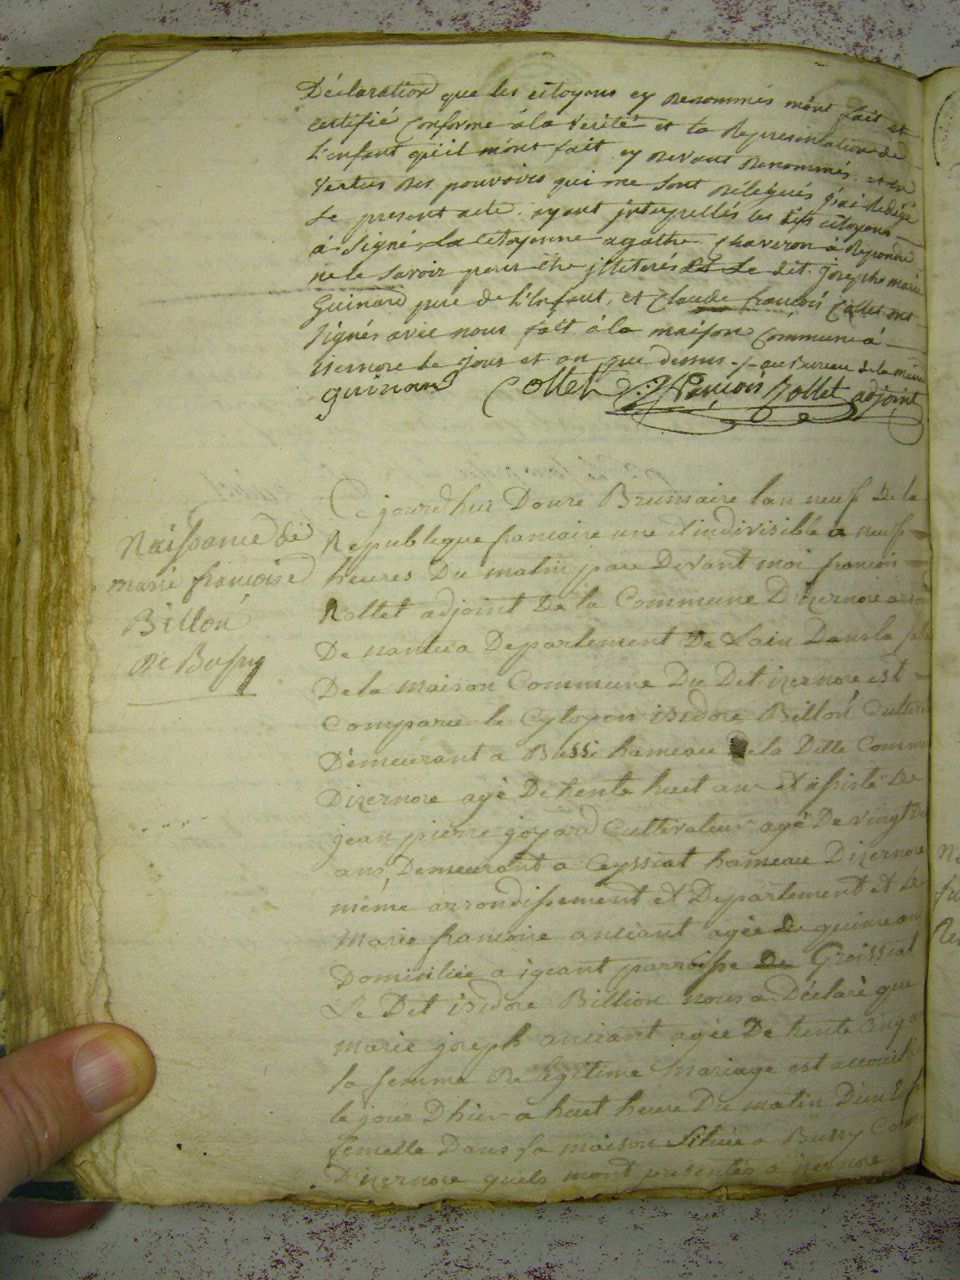 Déclaration que les citoyens cy denommés m'ont fait et
certifié conforme a la verité et la Representation de
L'enfant qu'il m'ont fait cy devant denommés. et en
vertus des pouvoirs qui me sont délégués j'ai Rédigé
Le present acte. ayant jnterpellés les dits citoyens
à signés La citoyenne agathe à Repondu
ne le savoir pour être jlliterés Le dit joseph marie
Guinard pere de L'Enfant, et Claude françois Collet ont
signés avec nous fait à la maison Commune à
izernore Le jour et an que dessus ./. au Bureau de la mairie
guinard Collet françois Rollet adjoint
Naissance de
marie francoise
Billon
de Bussy
Ce jourdhui Douze Brumaire lan neuf de la
Republeque francaise une et indivisible a neuf
heures Du matin pare Devant moi francois
Rollet adjoint De la Commune Dizernore arrond
De nantua Departement De Lain Dans la salle
De la maison Commune Du Dit izernore est
Comparu le Cytoyen isidore Billon Culteva
Demeurant a Bussi hameau De la Ditte Commune
Dizernore agé De trente huit ans et assisté De
jean pierre goyard Cultivateur agé De vingt
ans Demeurant a Ceyssiat hameau Dizernore
même arrondissement et Departement et De
Marie francoise anciant agée De quinze an
Domiciliée a igeant parroisse De Groissiat
Le Dit isidore Billion nous a Déclaré que
Marie joseph anciant agée De trente cinq a
sa femme De legitime Mariage est accouché
le jour Dhier a huit heure Du matin D'un Enf
femelle Dans sa maison Située a Bussy Com
Dizernore quels mont presentés a izernore